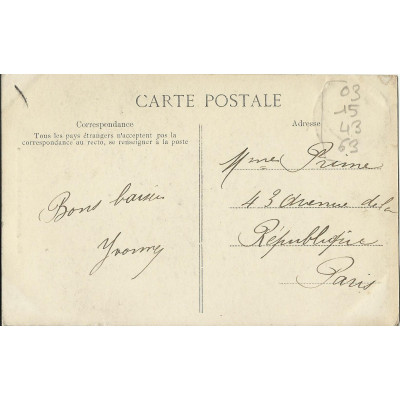 CARTE POSTALE
Correspondance
Tous les pays étrangers n'acceptent pas la
correspondance au recto, se renseigner à la poste
Adresse
03
15
43
63
Bons baisers
Yvonne
Mme Prime
43 Avenue de la
République
Paris